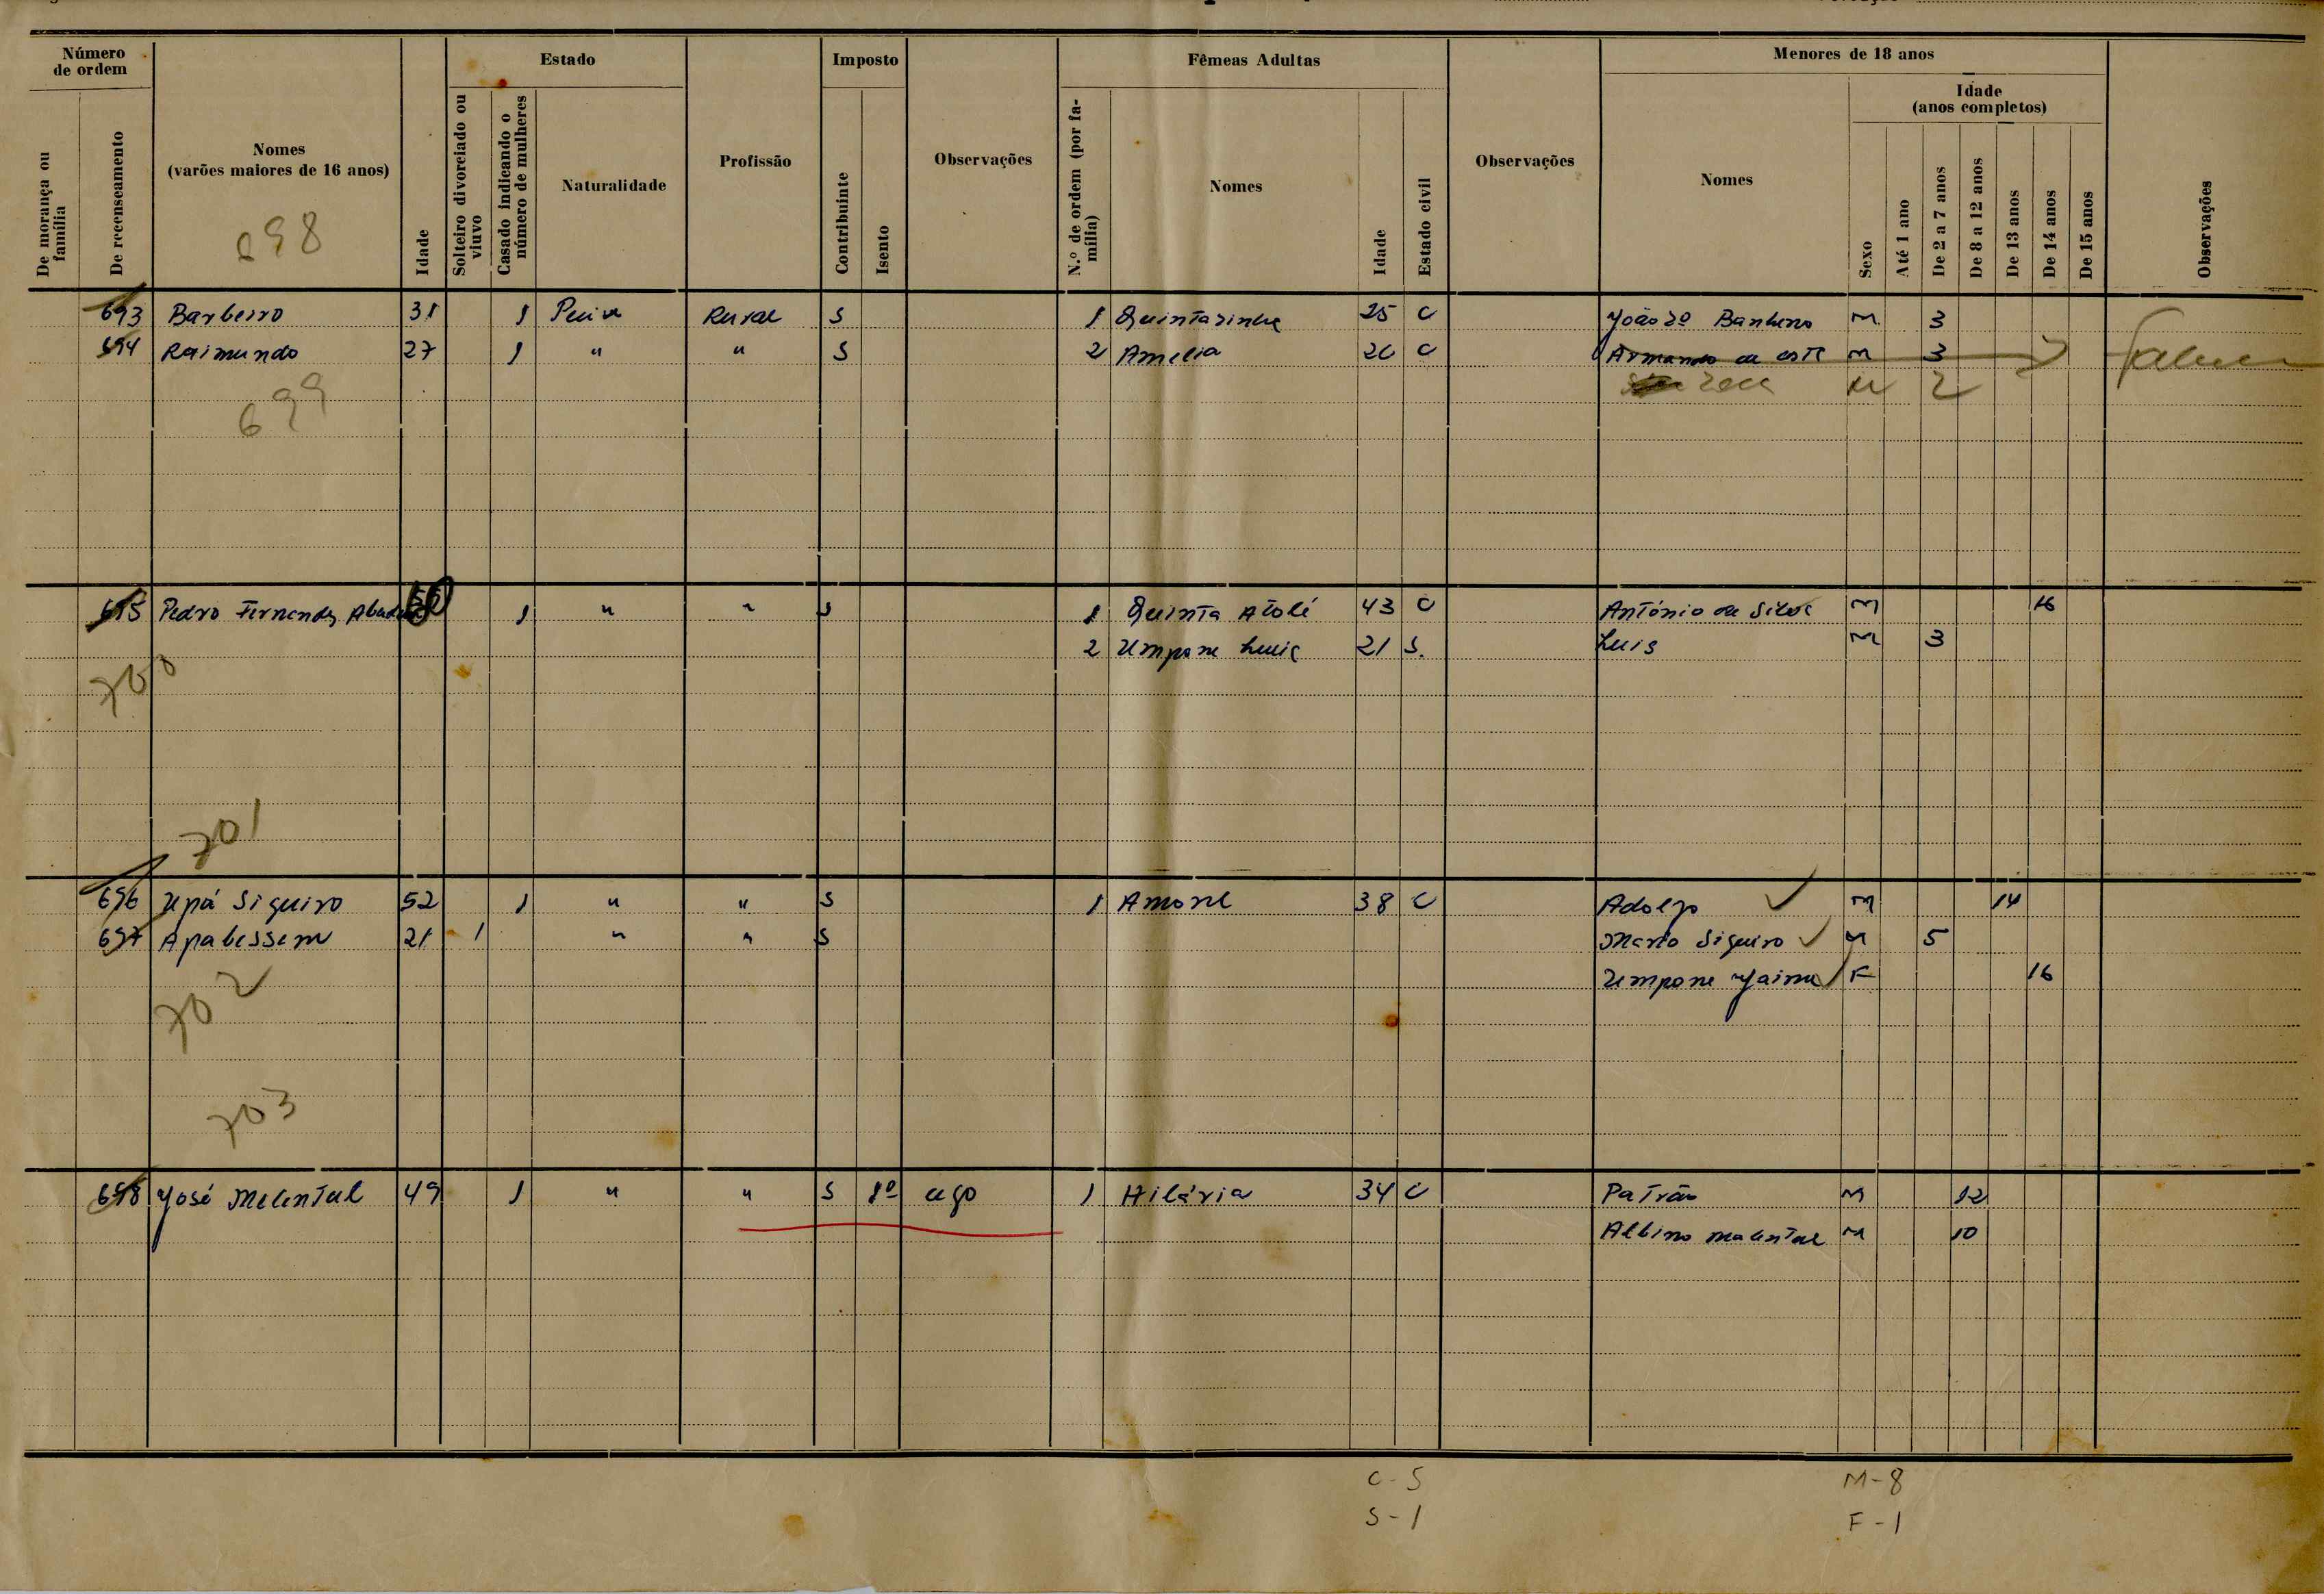 Número de ordem
Estado
Imposto
Fêmeas Adultas
Menores de 18 anos
De morança ou família
De recenseamento
Nomes (varões maiores de 16 anos)
Idade
Solteiro divorciado ou viuvo
Casado indicando o número de mulheres
Naturalidade
Profissão
Contribuinte
Isento
Observações
N.º de ordem (por família)
Nomes
Idade
Estado civil
Observações
Nomes
Sexo
Idade (anos completos)
Até 1 ano
De 2 a 7 anos
De 8 a 12 anos
De 13 anos
De 14 anos
De 15 anos
Observações
698
693 Barbeiro 31 1 Rural S 1 Quintazinha 25 C João M 3
694 Raimundo 27 1 " " S 2 Amelia C Armando M 3
M 2
699
695 Pedro Fernandes 1 " " S 1 Quinta Atolé 43 C António da Silva M 16
2 Umpane Luis 21 S. Luis M 3
700
701
696 Upá Siqueiro 52 1 " " S 1 Amone 38 C Adolfo M 14
697 Apabessem 21 1 " " S Mario Siqueiro M 5
Umpane Jaime F 16
702
703
698 José Malental 49 1 " " S 1 Hilária 34 C Patrão M 12
Albino Malental M 10
C-5 M-8
S-1 F-1